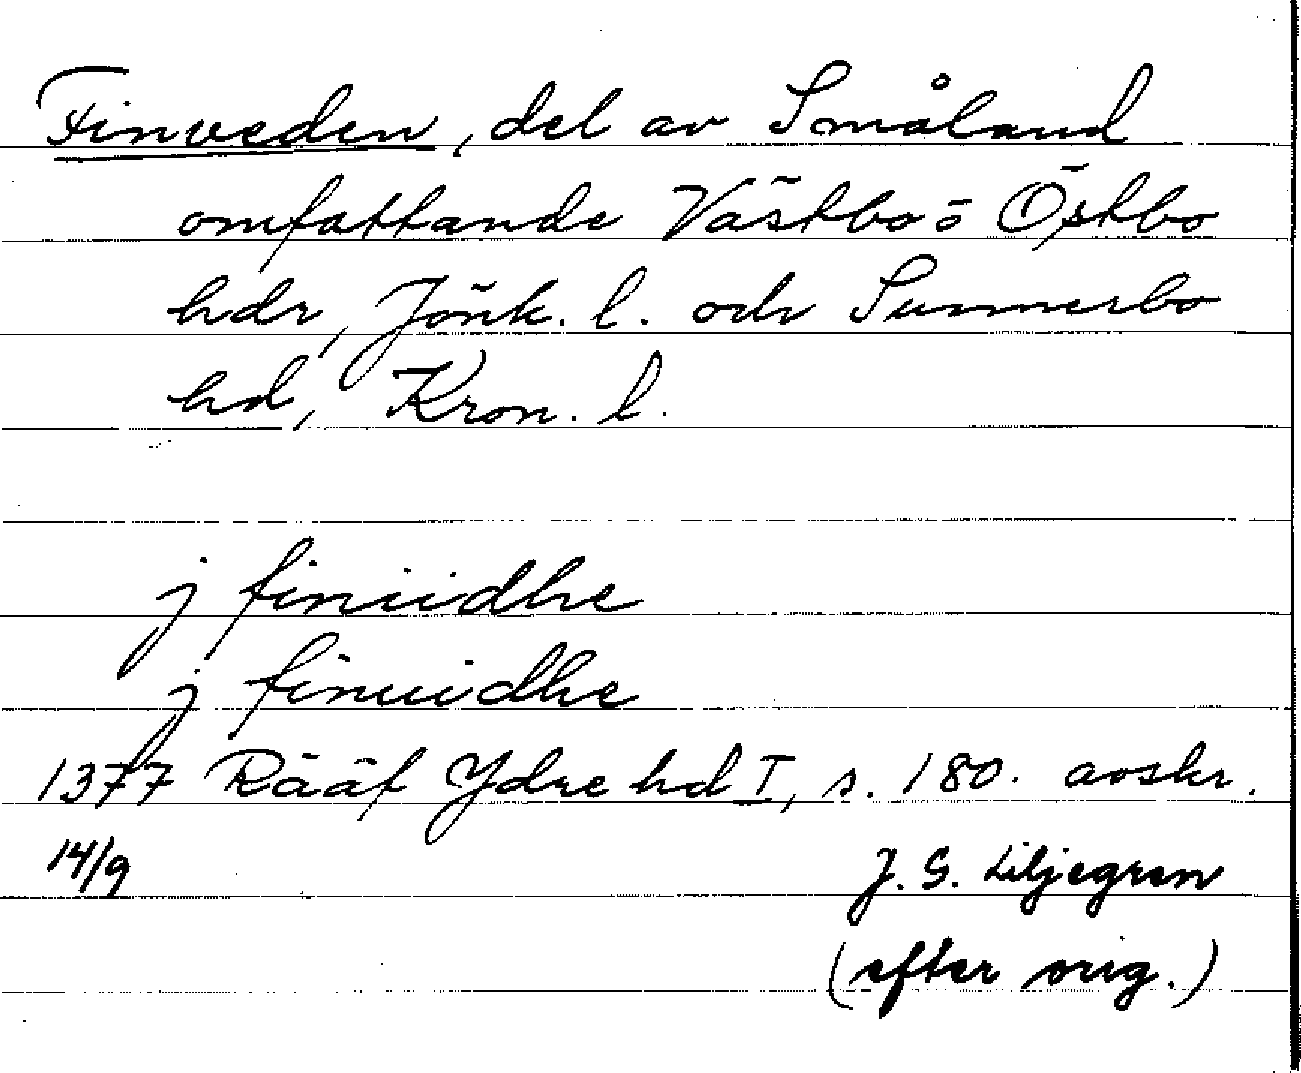 Finveden, del av Småland
omfattande Västbo o Östbo
hdr, Jönk. l. och Sunnerbo
hd, Kron. l.
j finuidhe
j finuidhe
1377 Rääf Ydre hd I, s. 180. avskr.
14/9 J. G. Liljegren
(efter orig.)